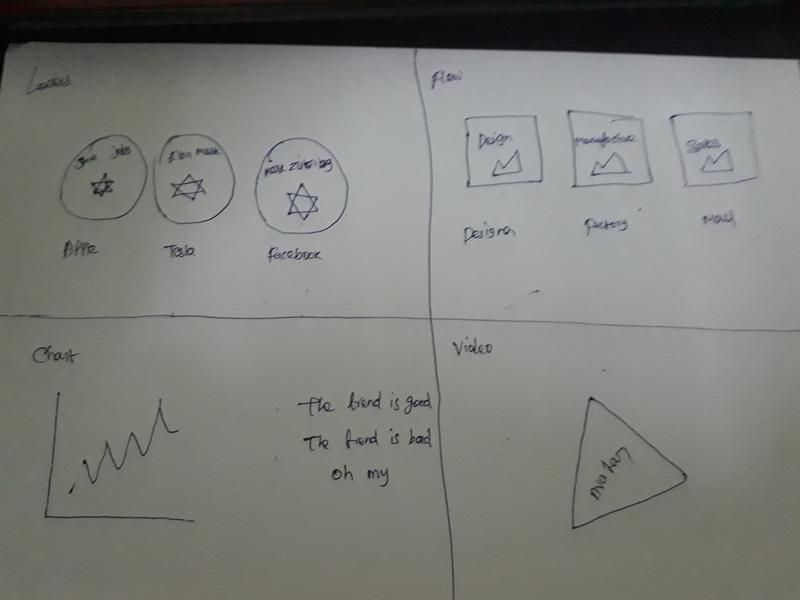 Leaders
Steve Jobs
Elon Musk
Mark Zukerbag
Apple
Tesla
Facebook
Flow
Design
Manufacture
Sales
Designer
Factory
Chart
The trend is good
The trend is bad
Oh my
Video
Avatar